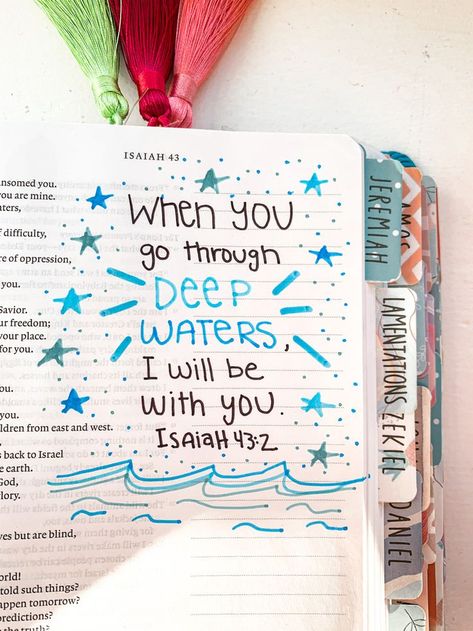 ISAIAH 43
When you
go through
DEEP
WATERS,
I will be
with you.
ISAIAH 43:2
ansomed you.
you are mine.
aters,
f difficulty,
re of oppression,
Savior.
ur freedom;
your place.
for you.
you.
ildren from east and west.
s back to Israel
e earth.
God,
lory.
ves but are blind,
orld!
told such things?
appen tomorrow?
predictions?
the truth?
JEREMIAH
LAMENTATIONS
EZEKIEL
DANIEL